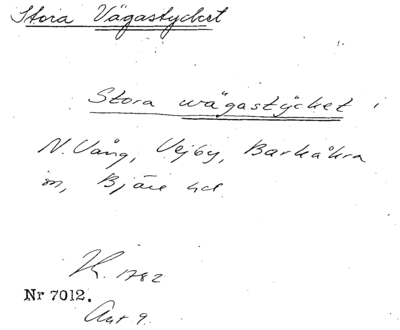 Stora Vägastycket
Stora wägastÿcket i
N. Vång, Vejby, Barkåkra
sn, Bjäre hd.
1782
Nr 7012.
Akt 9.